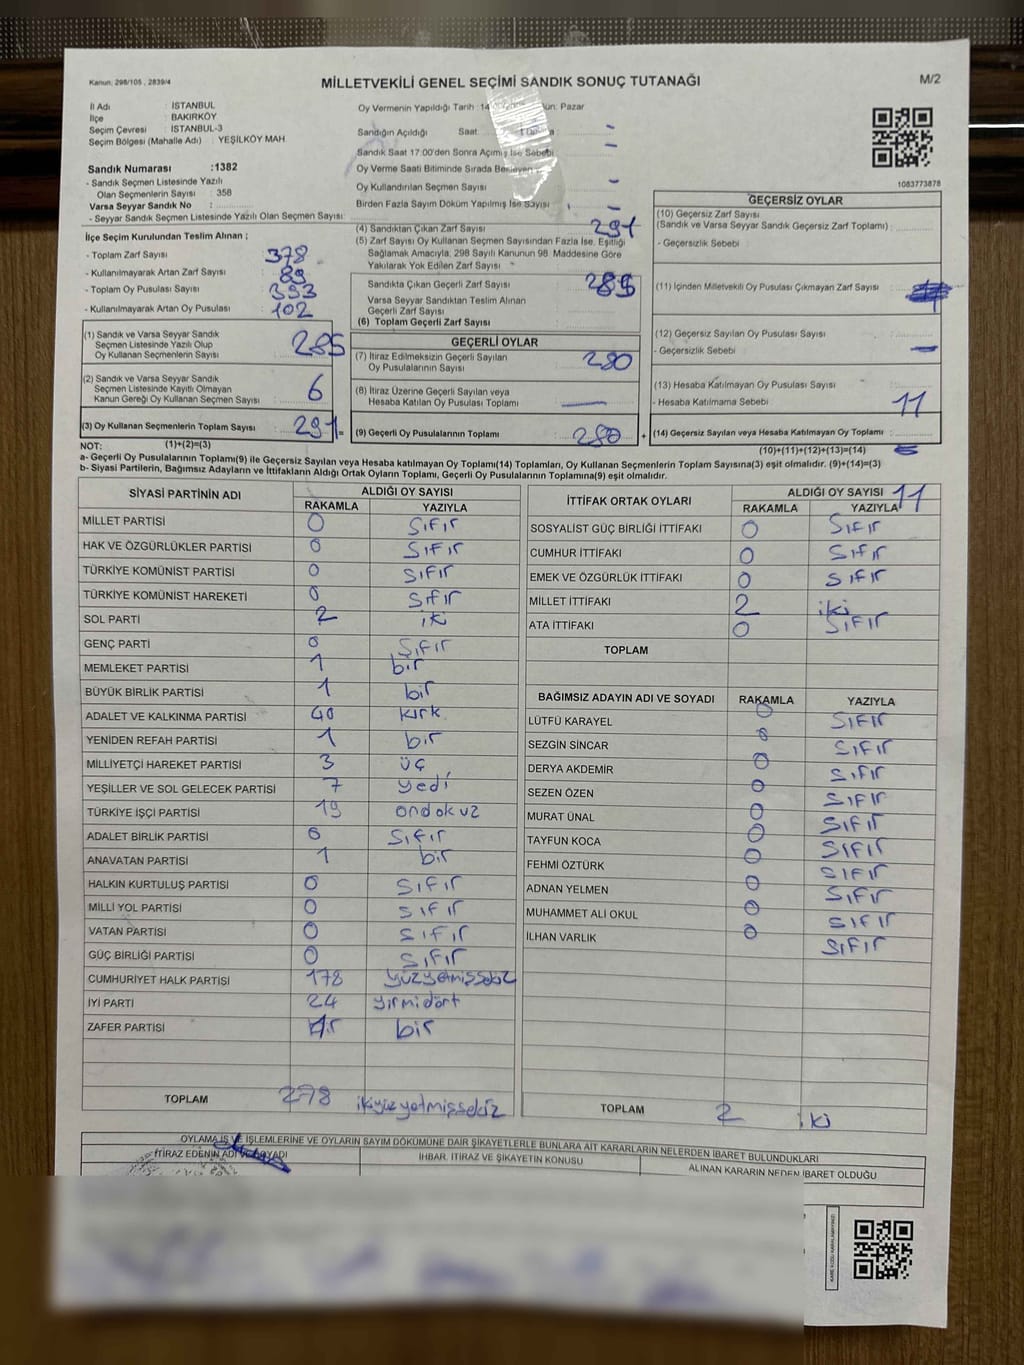 Kanun: 298/105 , 2839/4
MİLLETVEKİLİ GENEL SEÇİMİ SANDIK SONUÇ TUTANAĞI
M/2
İl Adı : İSTANBUL
İlçe : BAKIRKÖY
Seçim Çevresi : İSTANBUL-3
Seçim Bölgesi (Mahalle Adı) : YEŞİLKÖY MAH
Sandık Numarası :1382
- Sandık Seçmen Listesinde Yazılı
Olan Seçmenlerin Sayısı : 358
Varsa Seyyar Sandık No :
- Seyyar Sandık Seçmen Listesinde Yazılı Olan Seçmen Sayısı:
Oy Vermenin Yapıldığı Tarih :14 Gün: Pazar
Sandığın Açıldığı Saat –
Sandık Saat 17:00'den Sonra Açımış İse Sebebi –
Oy Verme Saati Bitiminde Sırada Bekleyen
Oy Kullandırılan Seçmen Sayısı –
Birden Fazla Sayım Döküm Yapılmış İse Sayısı –
1083773878
İlçe Seçim Kurulundan Teslim Alınan ;
- Toplam Zarf Sayısı : 378
- Kullanılmayarak Artan Zarf Sayısı : 89
- Toplam Oy Pusulası Sayısı : 393
- Kullanılmayarak Artan Oy Pusulası : 102
(1) Sandık ve Varsa Seyyar Sandık
Seçmen Listesinde Yazılı Olup
Oy Kullanan Seçmenlerin Sayısı : 285
(2) Sandık ve Varsa Seyyar Sandık
Seçmen Listesinde Kayıtlı Olmayan
Kanun Gereği Oy Kullanan Seçmen Sayısı : 6
(3) Oy Kullanan Seçmenlerin Toplam Sayısı : 291
(4) Sandıktan Çıkan Zarf Sayısı 291
(5) Zarf Sayısı Oy Kullanan Seçmen Sayısından Fazla İse, Eşitliği
Sağlamak Amacıyla, 298 Sayılı Kanunun 98. Maddesine Göre
Yakılarak Yok Edilen Zarf Sayısı :
Sandıkta Çıkan Geçerli Zarf Sayısı :
Varsa Seyyar Sandıktan Teslim Alınan
Geçerli Zarf Sayısı
(6) Toplam Geçerli Zarf Sayısı :
GEÇERLİ OYLAR
(7) İtiraz Edilmeksizin Geçerli Sayılan
Oy Pusulalarının Sayısı : 280
(8) İtiraz Üzerine Geçerli Sayılan veya
Hesaba Katılan Oy Pusulası Toplamı : —
= (9) Geçerli Oy Pusulalarının Toplamı : 280
GEÇERSİZ OYLAR
(10) Geçersiz Zarf Sayısı
(Sandık ve Varsa Seyyar Sandık Geçersiz Zarf Toplamı) :
- Geçersizlik Sebebi :
(11) İçinden Milletvekili Oy Pusulası Çıkmayan Zarf Sayısı :
(12) Geçersiz Sayılan Oy Pusulası Sayısı :
- Geçersizlik Sebebi : —
(13) Hesaba Katılmayan Oy Pusulası Sayısı :
- Hesaba Katılmama Sebebi : 11
+ (14) Geçersiz Sayılan veya Hesaba Katılmayan Oy Toplamı :
NOT: (1)+(2)=(3)
(10)+(11)+(12)+(13)=(14)
a- Geçerli Oy Pusulalarının Toplamı(9) ile Geçersiz Sayılan veya Hesaba katılmayan Oy Toplamı(14) Toplamları, Oy Kullanan Seçmenlerin Toplam Sayısına(3) eşit olmalıdır. (9)+(14)=(3)
b- Siyasi Partilerin, Bağımsız Adayların ve İttifakların Aldığı Ortak Oyların Toplamı, Geçerli Oy Pusulalarının Toplamına(9) eşit olmalıdır.
11
SİYASİ PARTİNİN ADI ALDIĞI OY SAYISI
RAKAMLA YAZIYLA
MİLLET PARTİSİ 0 Sıfır
HAK VE ÖZGÜRLÜKLER PARTİSİ 0 Sıfır
TÜRKİYE KOMÜNİST PARTİSİ 0 Sıfır
TÜRKİYE KOMÜNİST HAREKETİ 0 Sıfır
SOL PARTİ 2 iki
GENÇ PARTİ 0 Sıfır
MEMLEKET PARTİSİ 1 bir
BÜYÜK BİRLİK PARTİSİ 1 bir
ADALET VE KALKINMA PARTİSİ 40 kırk
YENİDEN REFAH PARTİSİ 1 bir
MİLLİYETÇİ HAREKET PARTİSİ 3 üç
YEŞİLLER VE SOL GELECEK PARTİSİ 7 yedi
TÜRKİYE İŞÇİ PARTİSİ 19 ondokuz
ADALET BİRLİK PARTİSİ 0 Sıfır
ANAVATAN PARTİSİ 1 bir
HALKIN KURTULUŞ PARTİSİ 0 Sıfır
MİLLİ YOL PARTİSİ 0 Sıfır
VATAN PARTİSİ 0 Sıfır
GÜÇ BİRLİĞİ PARTİSİ 0 Sıfır
CUMHURİYET HALK PARTİSİ 178 yüzyetmişsekiz
İYİ PARTİ 24 yirmidört
ZAFER PARTİSİ bir
TOPLAM 278 ikiyüzyetmişsekiz
İTTİFAK ORTAK OYLARI ALDIĞI OY SAYISI
RAKAMLA YAZIYLA
SOSYALİST GÜÇ BİRLİĞİ İTTİFAKI 0 Sıfır
CUMHUR İTTİFAKI 0 Sıfır
EMEK VE ÖZGÜRLÜK İTTİFAKI 0 Sıfır
MİLLET İTTİFAKI 2 iki
ATA İTTİFAKI 0 Sıfır
TOPLAM
BAĞIMSIZ ADAYIN ADI VE SOYADI RAKAMLA YAZIYLA
LÜTFÜ KARAYEL 0 Sıfır
SEZGİN SİNCAR 0 Sıfır
DERYA AKDEMİR 0 Sıfır
SEZEN ÖZEN 0 Sıfır
MURAT ÜNAL 0 Sıfır
TAYFUN KOCA 0 Sıfır
FEHMİ ÖZTÜRK 0 Sıfır
ADNAN YELMEN 0 Sıfır
MUHAMMET ALİ OKUL 0 Sıfır
İLHAN VARLIK 0 Sıfır
TOPLAM 2 iki
OYLAMA İŞ VE İŞLEMLERİNE VE OYLARIN SAYIM DÖKÜMÜNE DAİR ŞİKAYETLERLE BUNLARA AİT KARARLARIN NELERDEN İBARET BULUNDUKLARI
İTİRAZ EDENİN ADI VE SOYADI
İHBAR, İTİRAZ VE ŞİKAYETİN KONUSU
ALINAN KARARIN NEDEN İBARET OLDUĞU